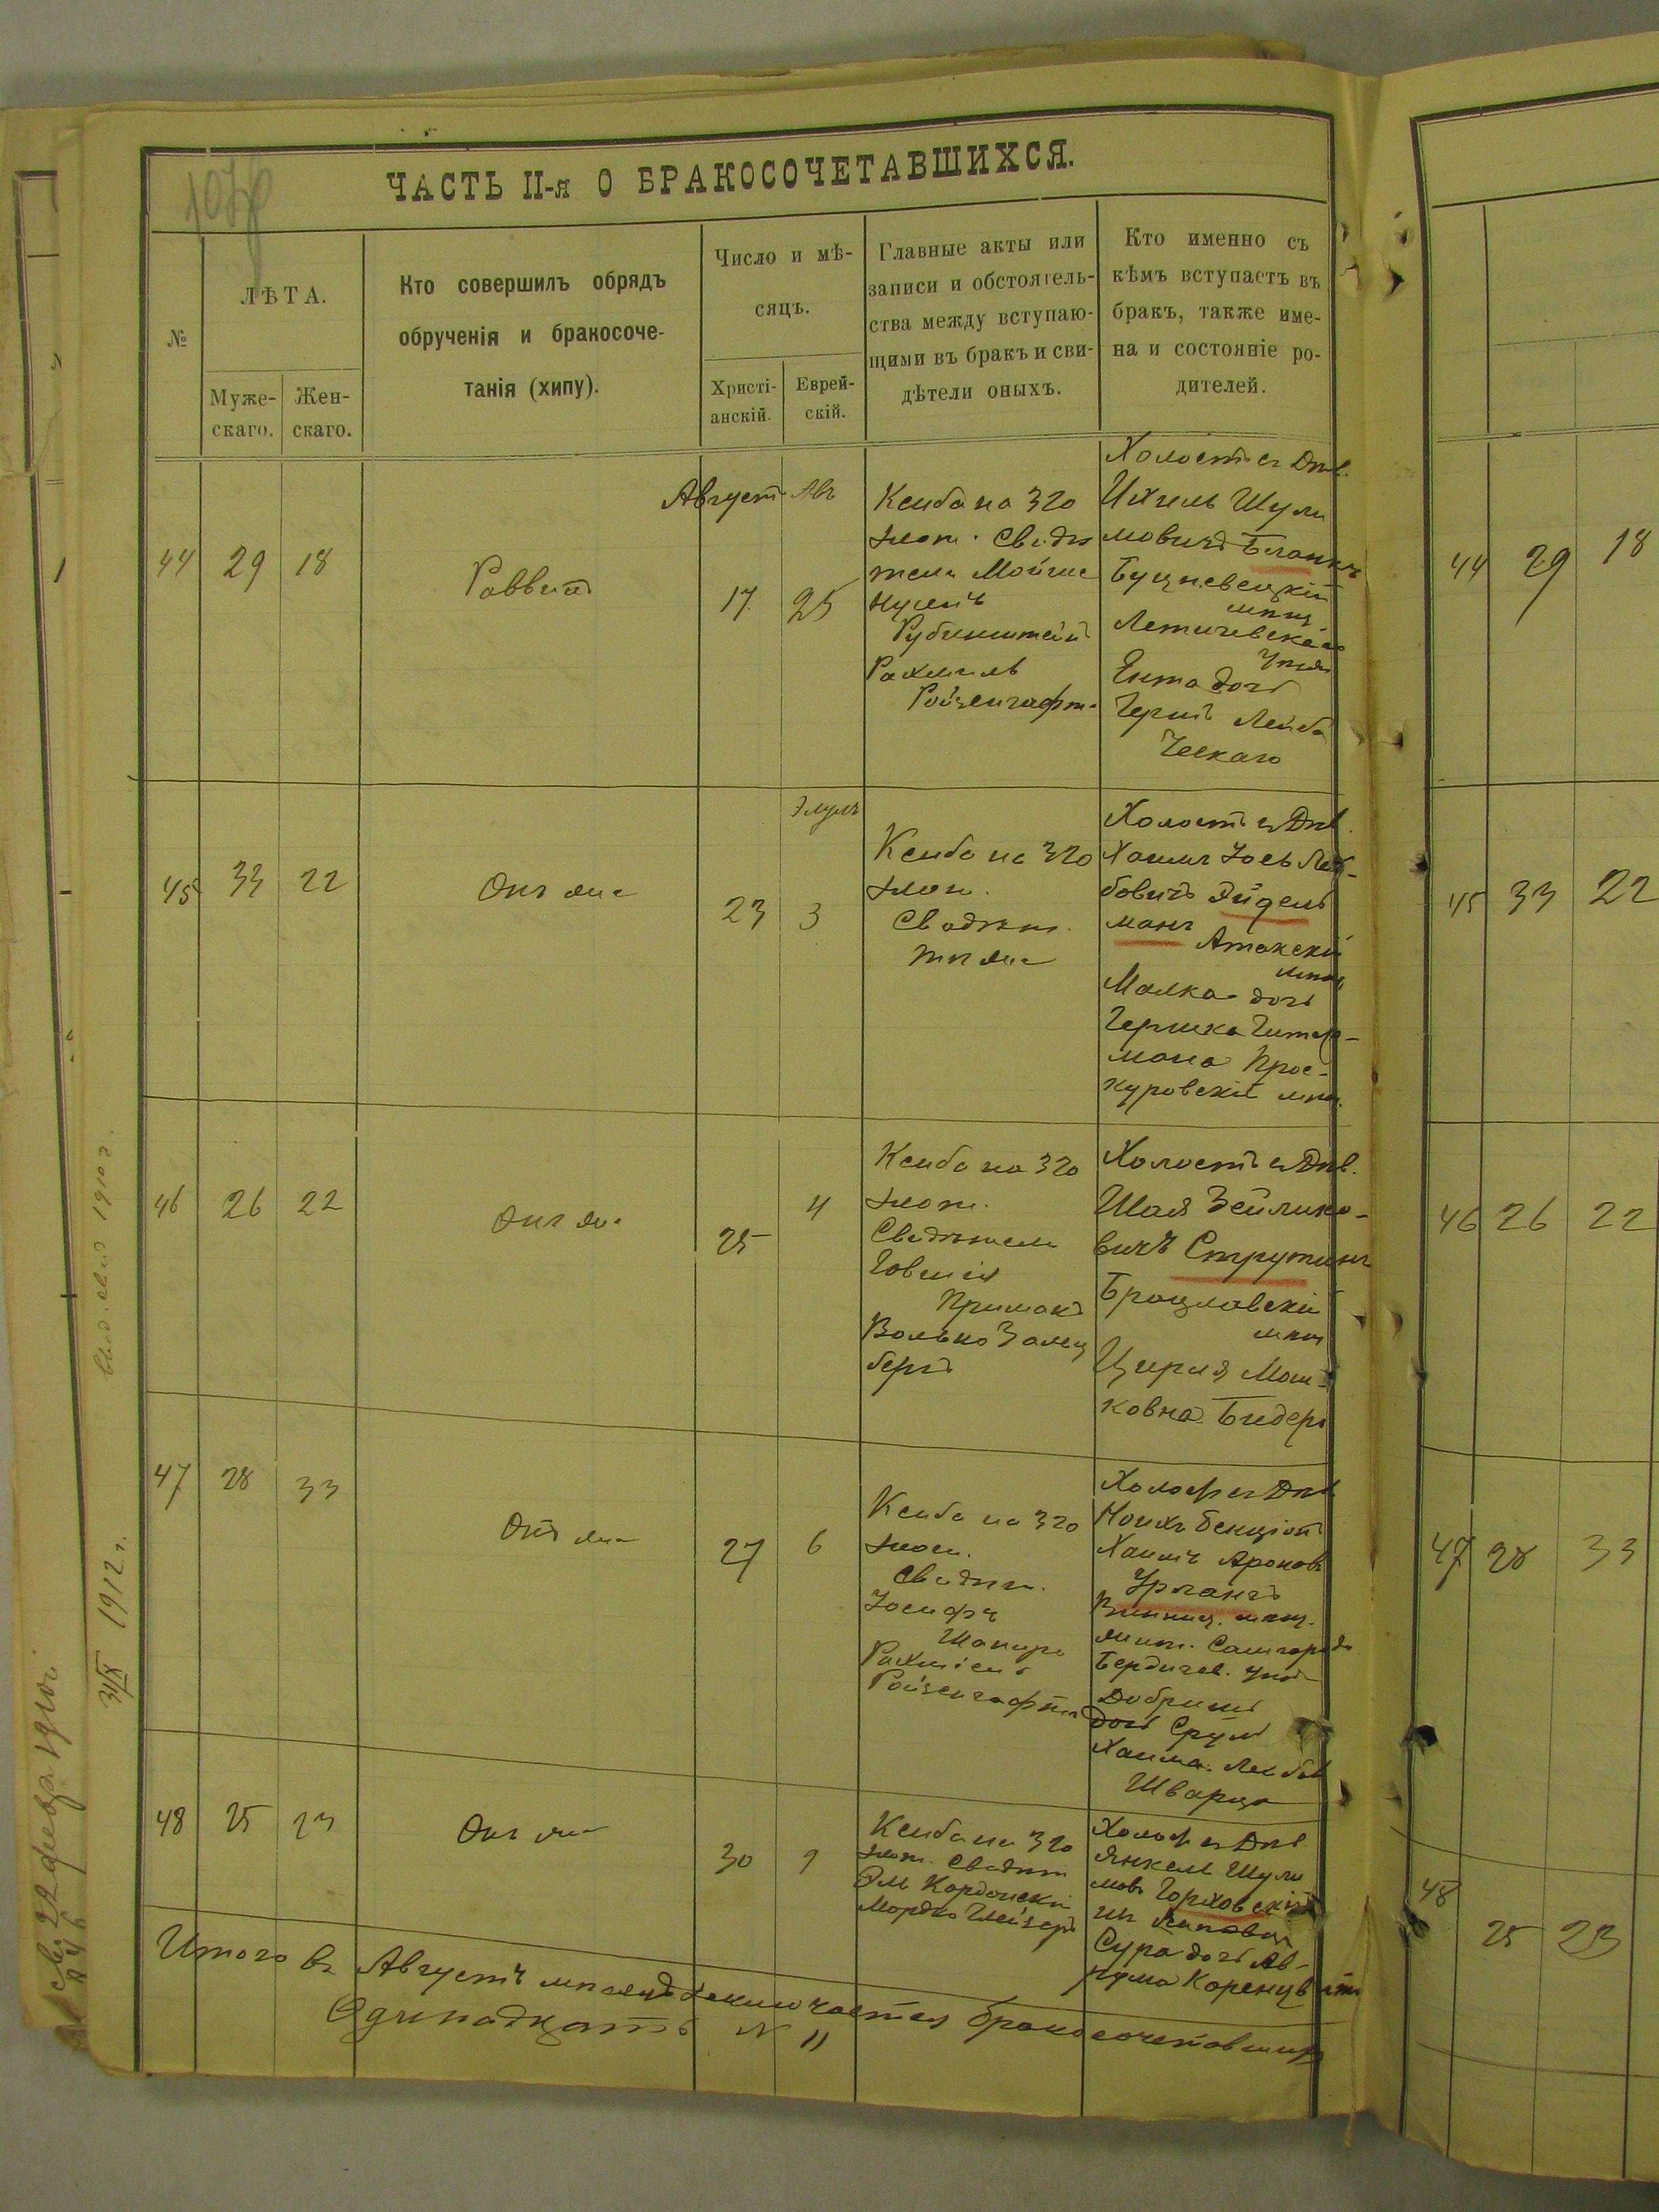 ЧАСТЬ II-я О БРАКОСОЧЕТАВШИХСЯ.
№
ЛѢТА.
Муже-
скаго.
Жен-
скаго.
Кто совершилъ обрядъ
обрученія и бракосоче-
танія (хипу).
Число и мѣ-
сяцъ.
Христі-
анскій.
Еврей-
скій.
Главные акты или
записи и обстоятель-
ства между вступаю-
щими въ бракъ и сви-
дѣтели оныхъ.
Кто именно съ
кѣмъ вступаетъ въ
бракъ, также име-
на и состояніе ро-
дителей.
44
29
18
Раввинъ
Август
Авъ
17
25
Ксиба на 320
злот. Свидѣ
тели Мойше
Рубинштейн
Рахмиль
Ройзенгафт
Холостъ съ Дѣв.
Ихиль Шули
мовичъ Бланкъ
Летичевска
Ента дочь
Лейба
Ческаго
45
33
22
Онъ же
Элулъ
23
3
Ксиба на 320
злот.
Свидѣт.
тѣ же
Холостъ съ Дѣв.
Хаимъ Іось Лей-
бовичъ Эйдель
манъ
Атакскій
мѣщ
Малка дочь
Гершка Гитер-
мана Прос-
куровскій мѣщ.
46
26
22
Онъ же
25
4
Ксиба на 320
злот.
Свидѣтели
Говшія
Примакъ
Волько Залц
бергъ
Холостъ съ Дѣв.
Шая Зейлико-
вичъ Струтинъ
Брацлавскій
мѣщ
Цирля Мош-
ковна Бидеръ
47
28
33
Онъ же
27
6
Ксиба на 320
злот.
Свидѣт.
Іосифъ
Шапиро
Рахміель
Ройзенгафтъ
Холост съ Дѣв
Бенціонъ
Хаимъ Аронов
Урлангъ
Винниц. мѣщ.
жит. Самгородъ
Бердичев. уѣзд
Добришъ
дочь Срулъ
Хаима Лейбов
Шварца
48
25
23
Онъ же
30
9
Ксиба на 320
злот. Свидѣт
Эль Кордонскій
Мордко Глейзеръ
Холост съ Дѣв.
Янкель Шули
мовъ Гориховскій
Сура дочь Ав-
рума Коренцвитъ
Итого въ Августѣ мѣсяцѣ бракосочетавшихъ
Одинадцать № 11
44
29
18
45
33
22
46
26
22
47
28
33
48
25
23
1912 г.